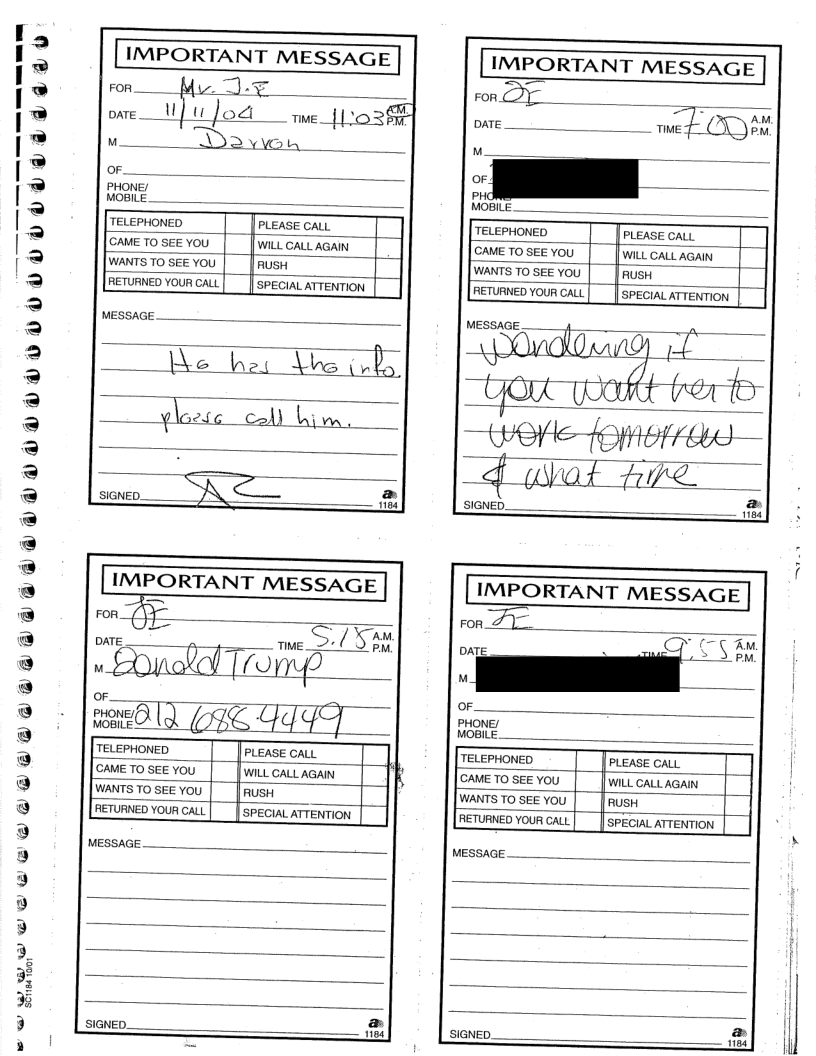 IMPORTANT MESSAGE
FOR Mr. J.E
DATE 11/11/04 TIME 11:03 A.M. P.M.
M Darren
OF
PHONE/
MOBILE
TELEPHONED PLEASE CALL
CAME TO SEE YOU WILL CALL AGAIN
WANTS TO SEE YOU RUSH
RETURNED YOUR CALL SPECIAL ATTENTION
MESSAGE
He has the info
please call him.
SIGNED
a
1184
IMPORTANT MESSAGE
FOR JE
DATE TIME 7:00 A.M. P.M.
M
OF
PHONE/
MOBILE
TELEPHONED PLEASE CALL
CAME TO SEE YOU WILL CALL AGAIN
WANTS TO SEE YOU RUSH
RETURNED YOUR CALL SPECIAL ATTENTION
MESSAGE
wondering if
you want her to
work tomorrow
& what time
SIGNED
a
1184
IMPORTANT MESSAGE
FOR JE
DATE TIME 5:15 A.M. P.M.
M Donald Trump
OF
PHONE/
MOBILE 212 688-4449
TELEPHONED PLEASE CALL
CAME TO SEE YOU WILL CALL AGAIN
WANTS TO SEE YOU RUSH
RETURNED YOUR CALL SPECIAL ATTENTION
MESSAGE
SIGNED
a
1184
IMPORTANT MESSAGE
FOR JE
DATE TIME 9:55 A.M. P.M.
M
OF
PHONE/
MOBILE
TELEPHONED PLEASE CALL
CAME TO SEE YOU WILL CALL AGAIN
WANTS TO SEE YOU RUSH
RETURNED YOUR CALL SPECIAL ATTENTION
MESSAGE
SIGNED
a
1184
SC1184 10/01